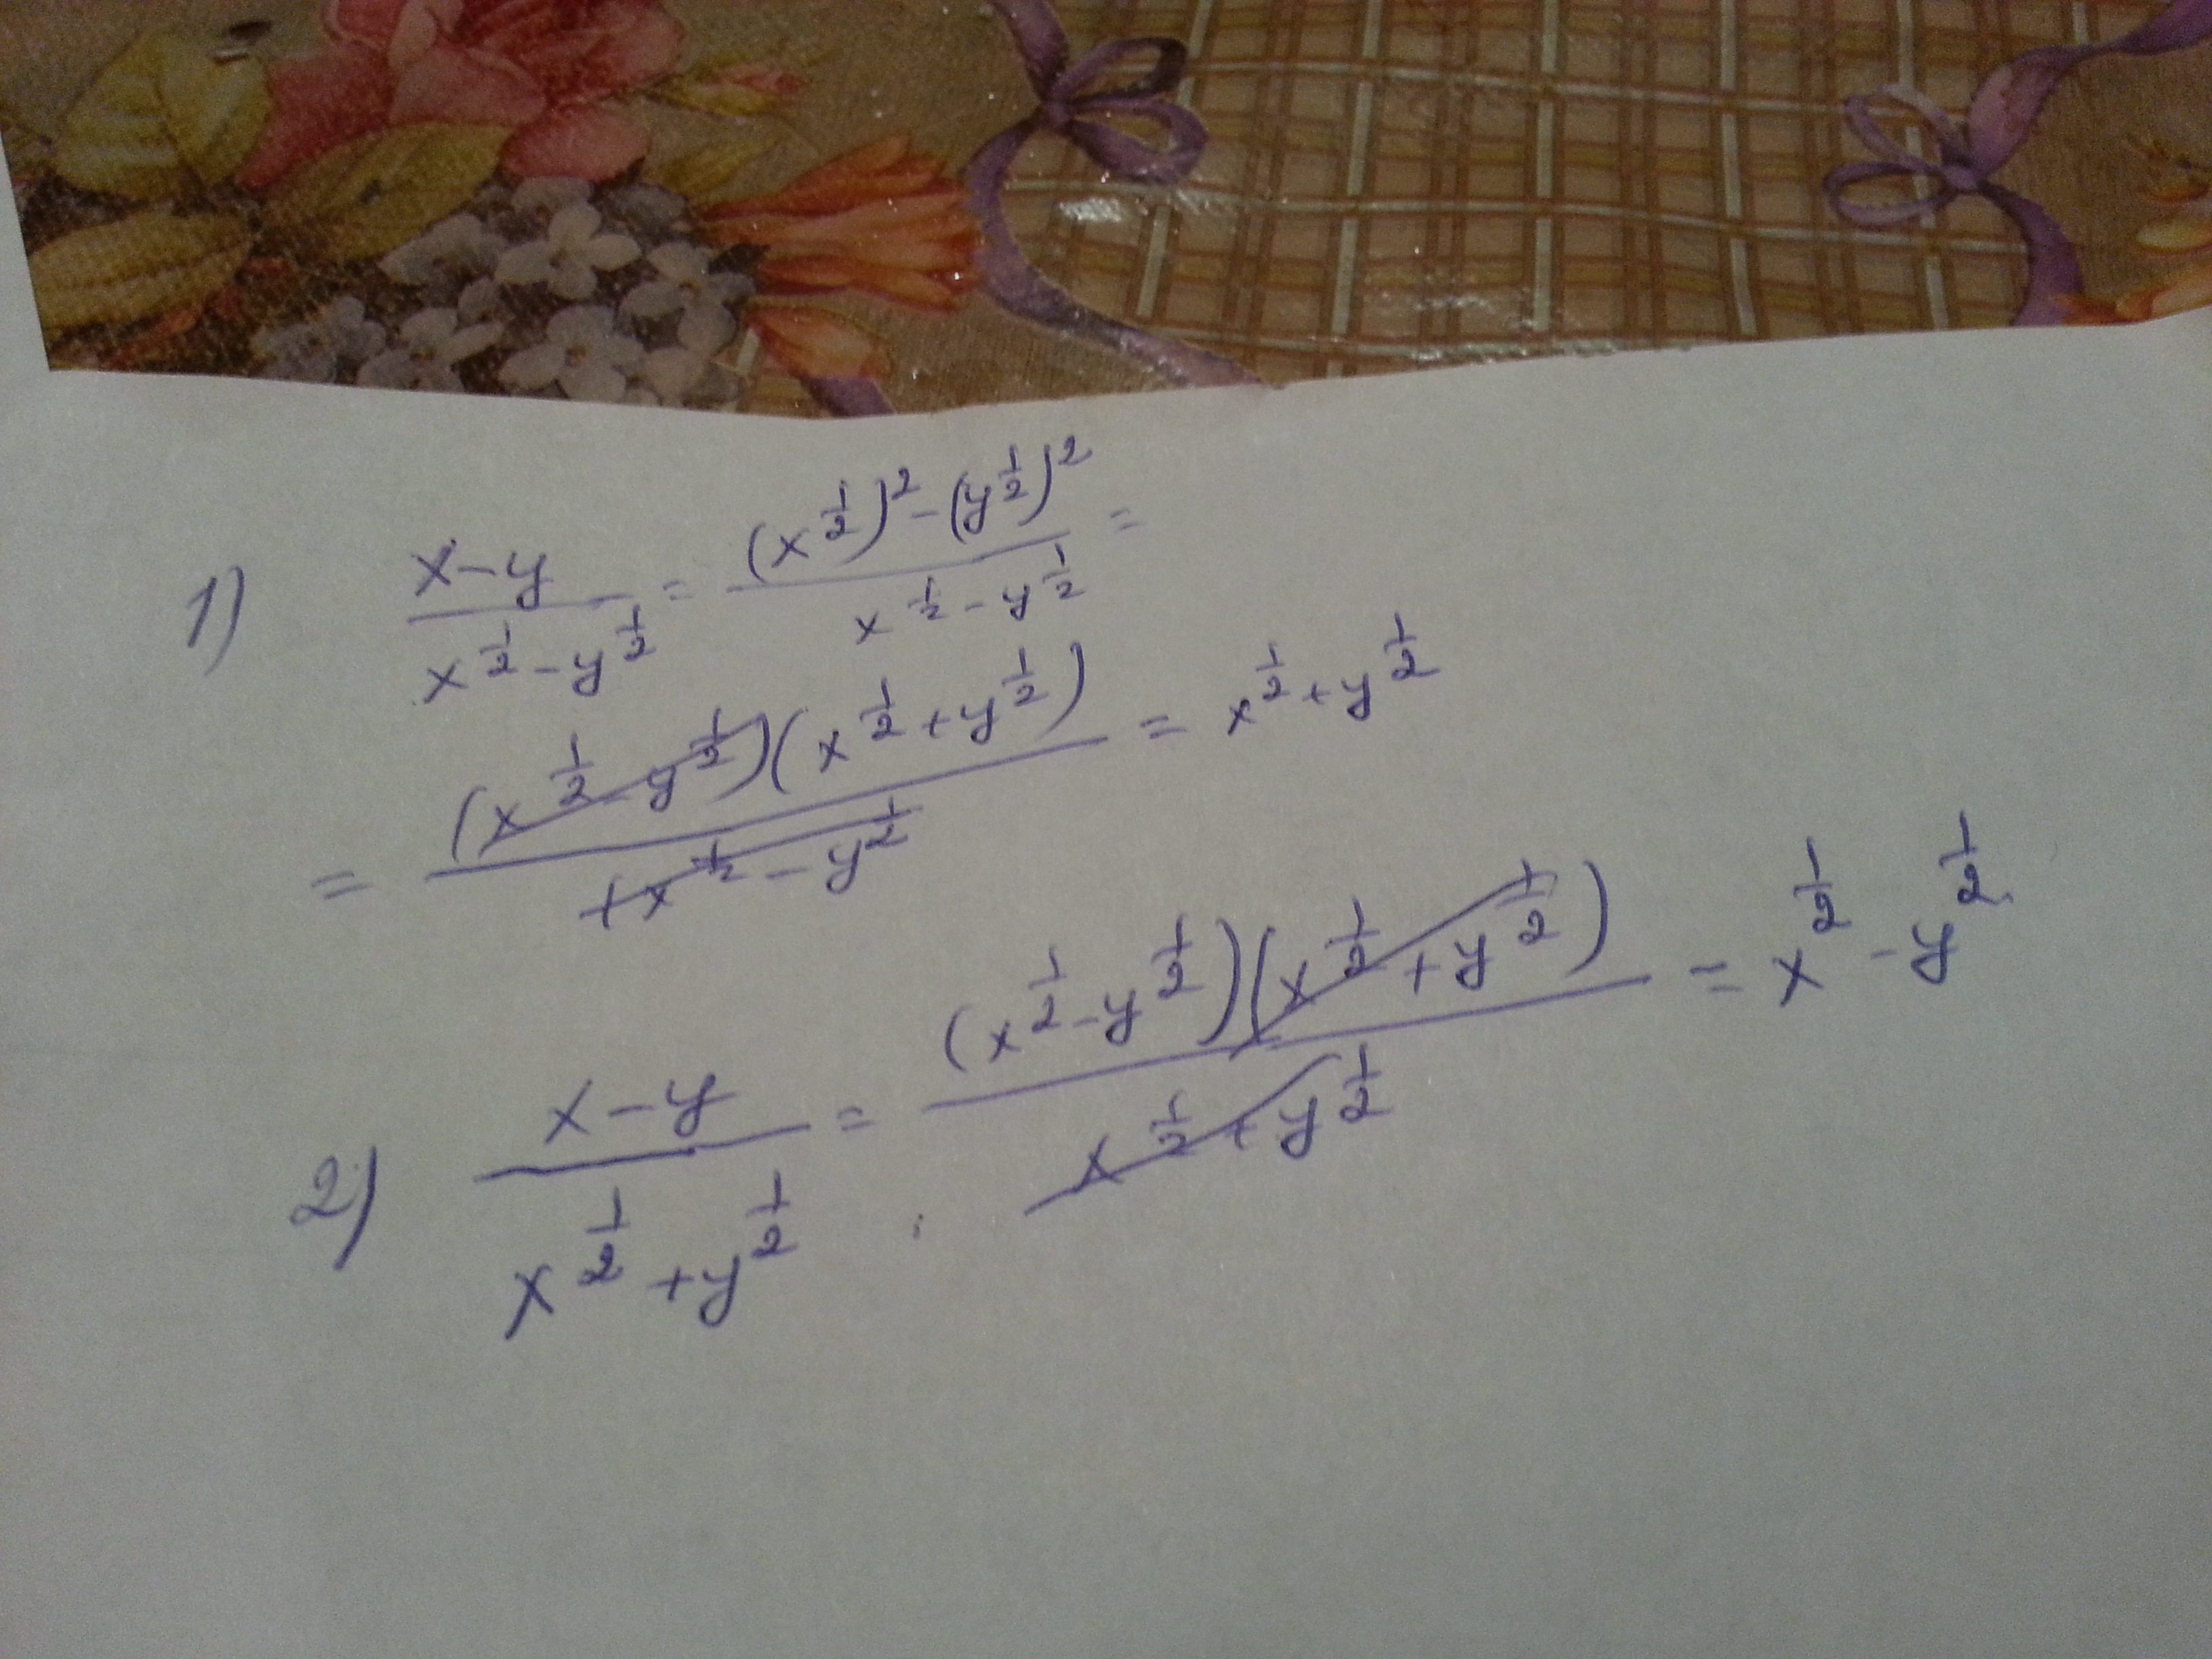 1) (x-y)/(x^(1/2)-y^(1/2)) = ((x^(1/2))^2-(y^(1/2))^2)/(x^(1/2)-y^(1/2)) =
= ((x^(1/2)-y^(1/2))(x^(1/2)+y^(1/2)))/(x^(1/2)-y^(1/2)) = x^(1/2)+y^(1/2)
2) (x-y)/(x^(1/2)+y^(1/2)) = ((x^(1/2)-y^(1/2))(x^(1/2)+y^(1/2)))/(x^(1/2)+y^(1/2)) = x^(1/2)-y^(1/2).